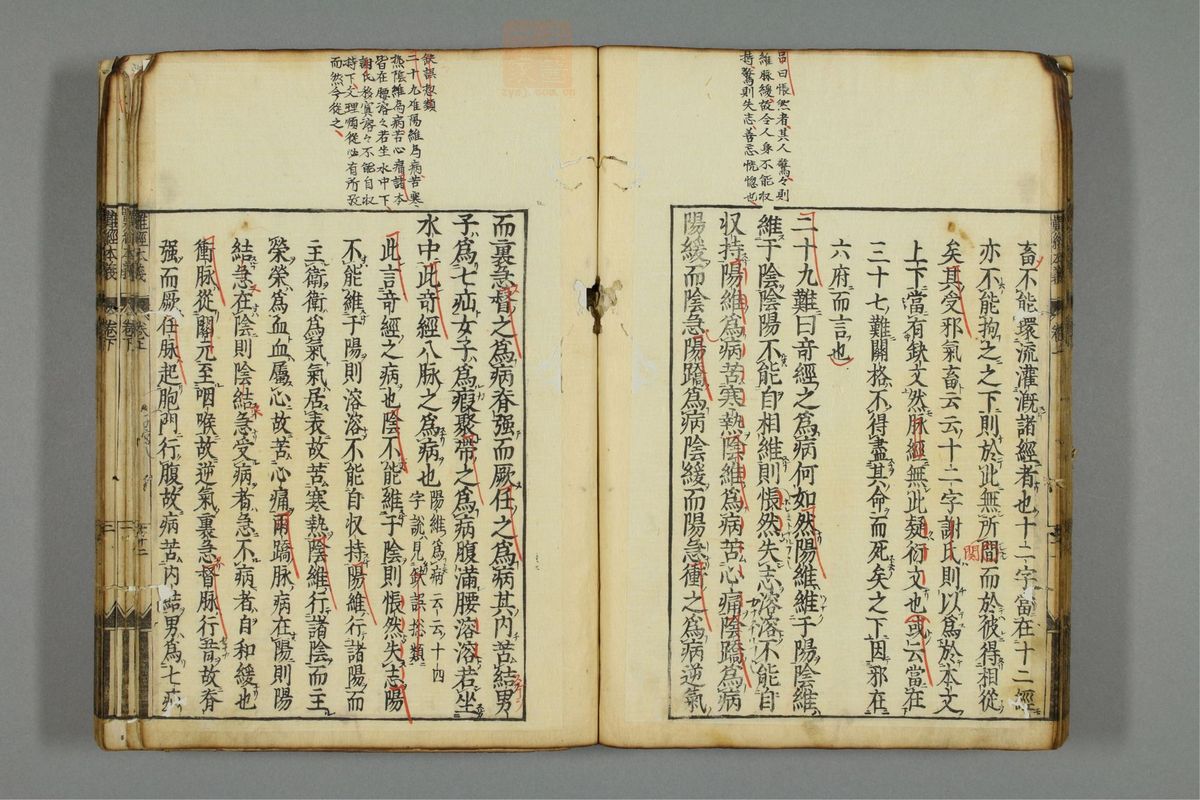 呂曰悵然者其人驚々則
維脉緩故令人身不能収
持驚則失志善忘恍惚也
畜不能環流灌漑諸經者也十二字當在十二經
亦不能拘之之下則於此無所間而於彼得相從
関
矣其受邪氣畜云云十二字謝氏則以爲於本文
上下當有缺文然脉經無此疑衍文也或云當在
三十七難關格不得盡其命而死矣之下因邪在
六府而言也
二十九難曰竒經之爲病何如然陽維維于陽陰維
維于陰陰陽不能自相維則悵然失志溶溶不能自
収持陽維爲病苦寒熱陰維爲病苦心痛陰蹻爲病
陽緩而陰急陽蹻爲病陰緩而陽急衝之爲病逆氣
難經本義
卷下
缺誤惣類
二十九難陽維爲病苦寒
熱陰維爲病苦心痛諸本
皆在腰溶々若坐水中下
謝氏移寘溶々不能自収
持下文理順從必有所攷
而然今從之
而裏急督之爲病脊强而厥任之爲病其内苦結男
子爲七疝女子爲瘕聚帶之爲病腹滿腰溶溶若坐
水中此竒經八脉之爲病也
陽維爲病云云十四
字說見缺誤捴類
此言竒經之病也陰不能維于陰則悵然失志陽
不能維于陽則溶溶不能自収持陽維行諸陽而
主衛衛爲氣氣居表故苦寒熱陰維行諸陰而主
榮榮爲血血屬心故苦心痛兩蹻脉病在陽則陽
結急在陰則陰結急受病者急不病者自和緩也
衝脉從關元至咽喉故逆氣裏急督脉行背故脊
强而厥任脉起胞門行腹故病苦内結男爲七疝
難經本義
卷下